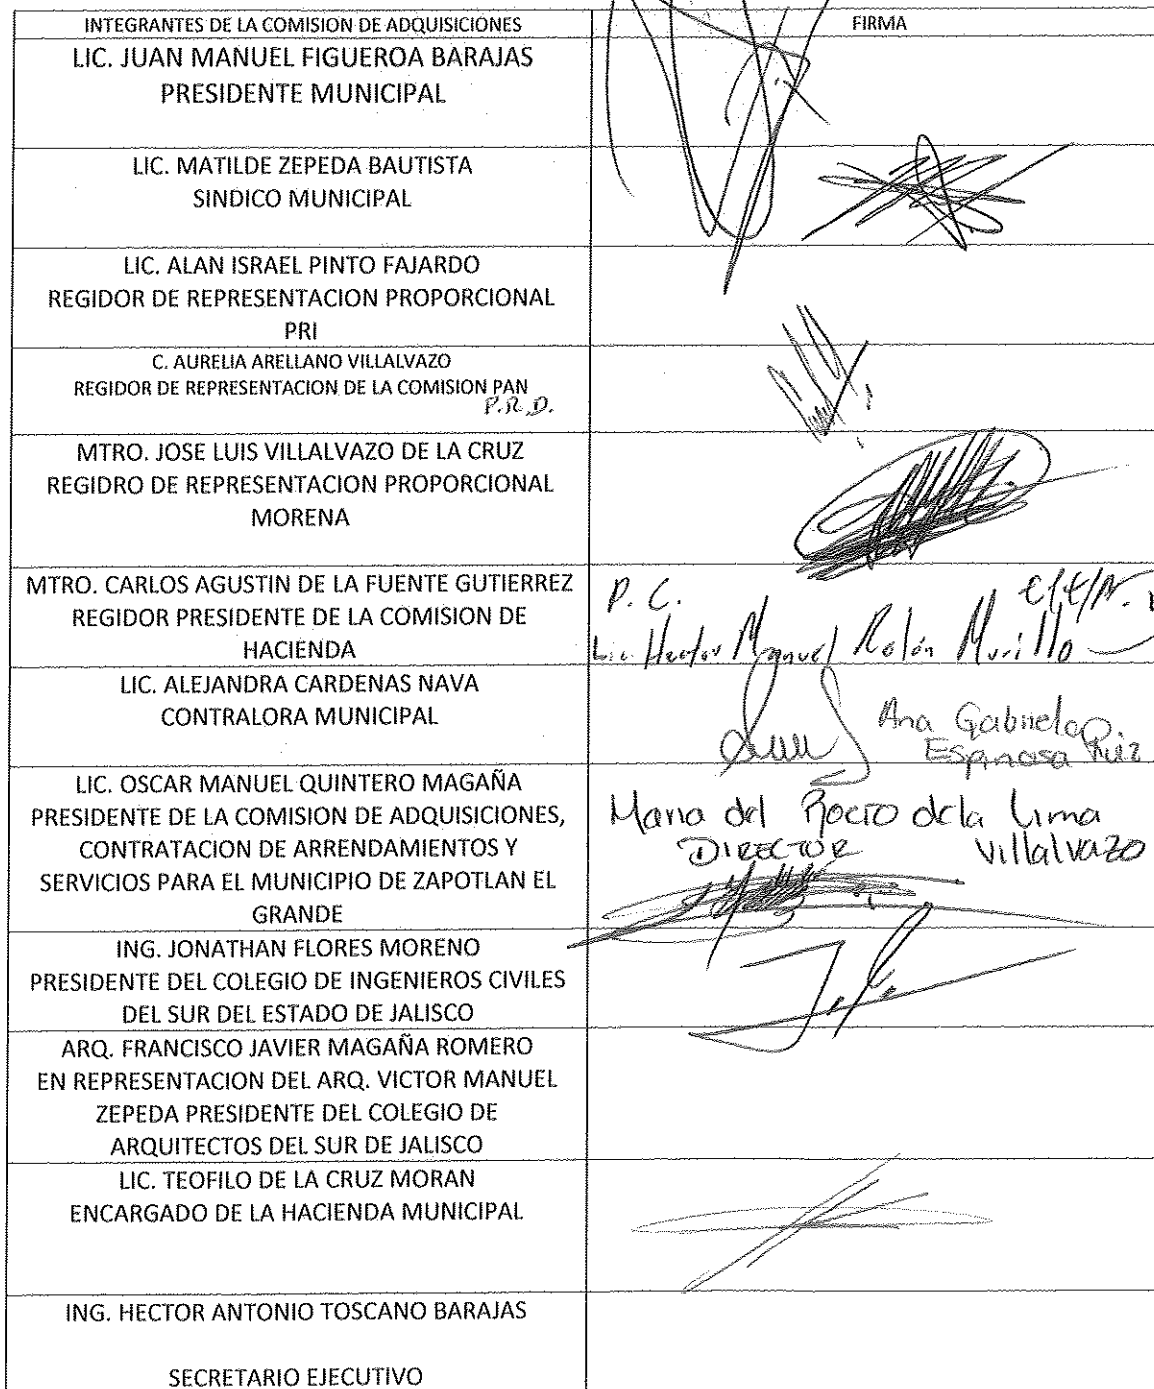 INTEGRANTES DE LA COMISION DE ADQUISICIONES
FIRMA
LIC. JUAN MANUEL FIGUEROA BARAJAS
PRESIDENTE MUNICIPAL
LIC. MATILDE ZEPEDA BAUTISTA
SINDICO MUNICIPAL
LIC. ALAN ISRAEL PINTO FAJARDO
REGIDOR DE REPRESENTACION PROPORCIONAL
PRI
C. AURELIA ARELLANO VILLALVAZO
REGIDOR DE REPRESENTACION DE LA COMISION PAN
P.R.D.
MTRO. JOSE LUIS VILLALVAZO DE LA CRUZ
REGIDRO DE REPRESENTACION PROPORCIONAL
MORENA
MTRO. CARLOS AGUSTIN DE LA FUENTE GUTIERREZ
REGIDOR PRESIDENTE DE LA COMISION DE
HACIENDA
P. C.
Lic. Hector Manuel Rolón Murillo
LIC. ALEJANDRA CARDENAS NAVA
CONTRALORA MUNICIPAL
Ana Gabriela
Espinosa Ruiz
LIC. OSCAR MANUEL QUINTERO MAGAÑA
PRESIDENTE DE LA COMISION DE ADQUISICIONES,
CONTRATACION DE ARRENDAMIENTOS Y
SERVICIOS PARA EL MUNICIPIO DE ZAPOTLAN EL
GRANDE
Maria del Rocio de la Lima
DIRECTOR Villalvazo
ING. JONATHAN FLORES MORENO
PRESIDENTE DEL COLEGIO DE INGENIEROS CIVILES
DEL SUR DEL ESTADO DE JALISCO
ARQ. FRANCISCO JAVIER MAGAÑA ROMERO
EN REPRESENTACION DEL ARQ. VICTOR MANUEL
ZEPEDA PRESIDENTE DEL COLEGIO DE
ARQUITECTOS DEL SUR DE JALISCO
LIC. TEOFILO DE LA CRUZ MORAN
ENCARGADO DE LA HACIENDA MUNICIPAL
ING. HECTOR ANTONIO TOSCANO BARAJAS
SECRETARIO EJECUTIVO